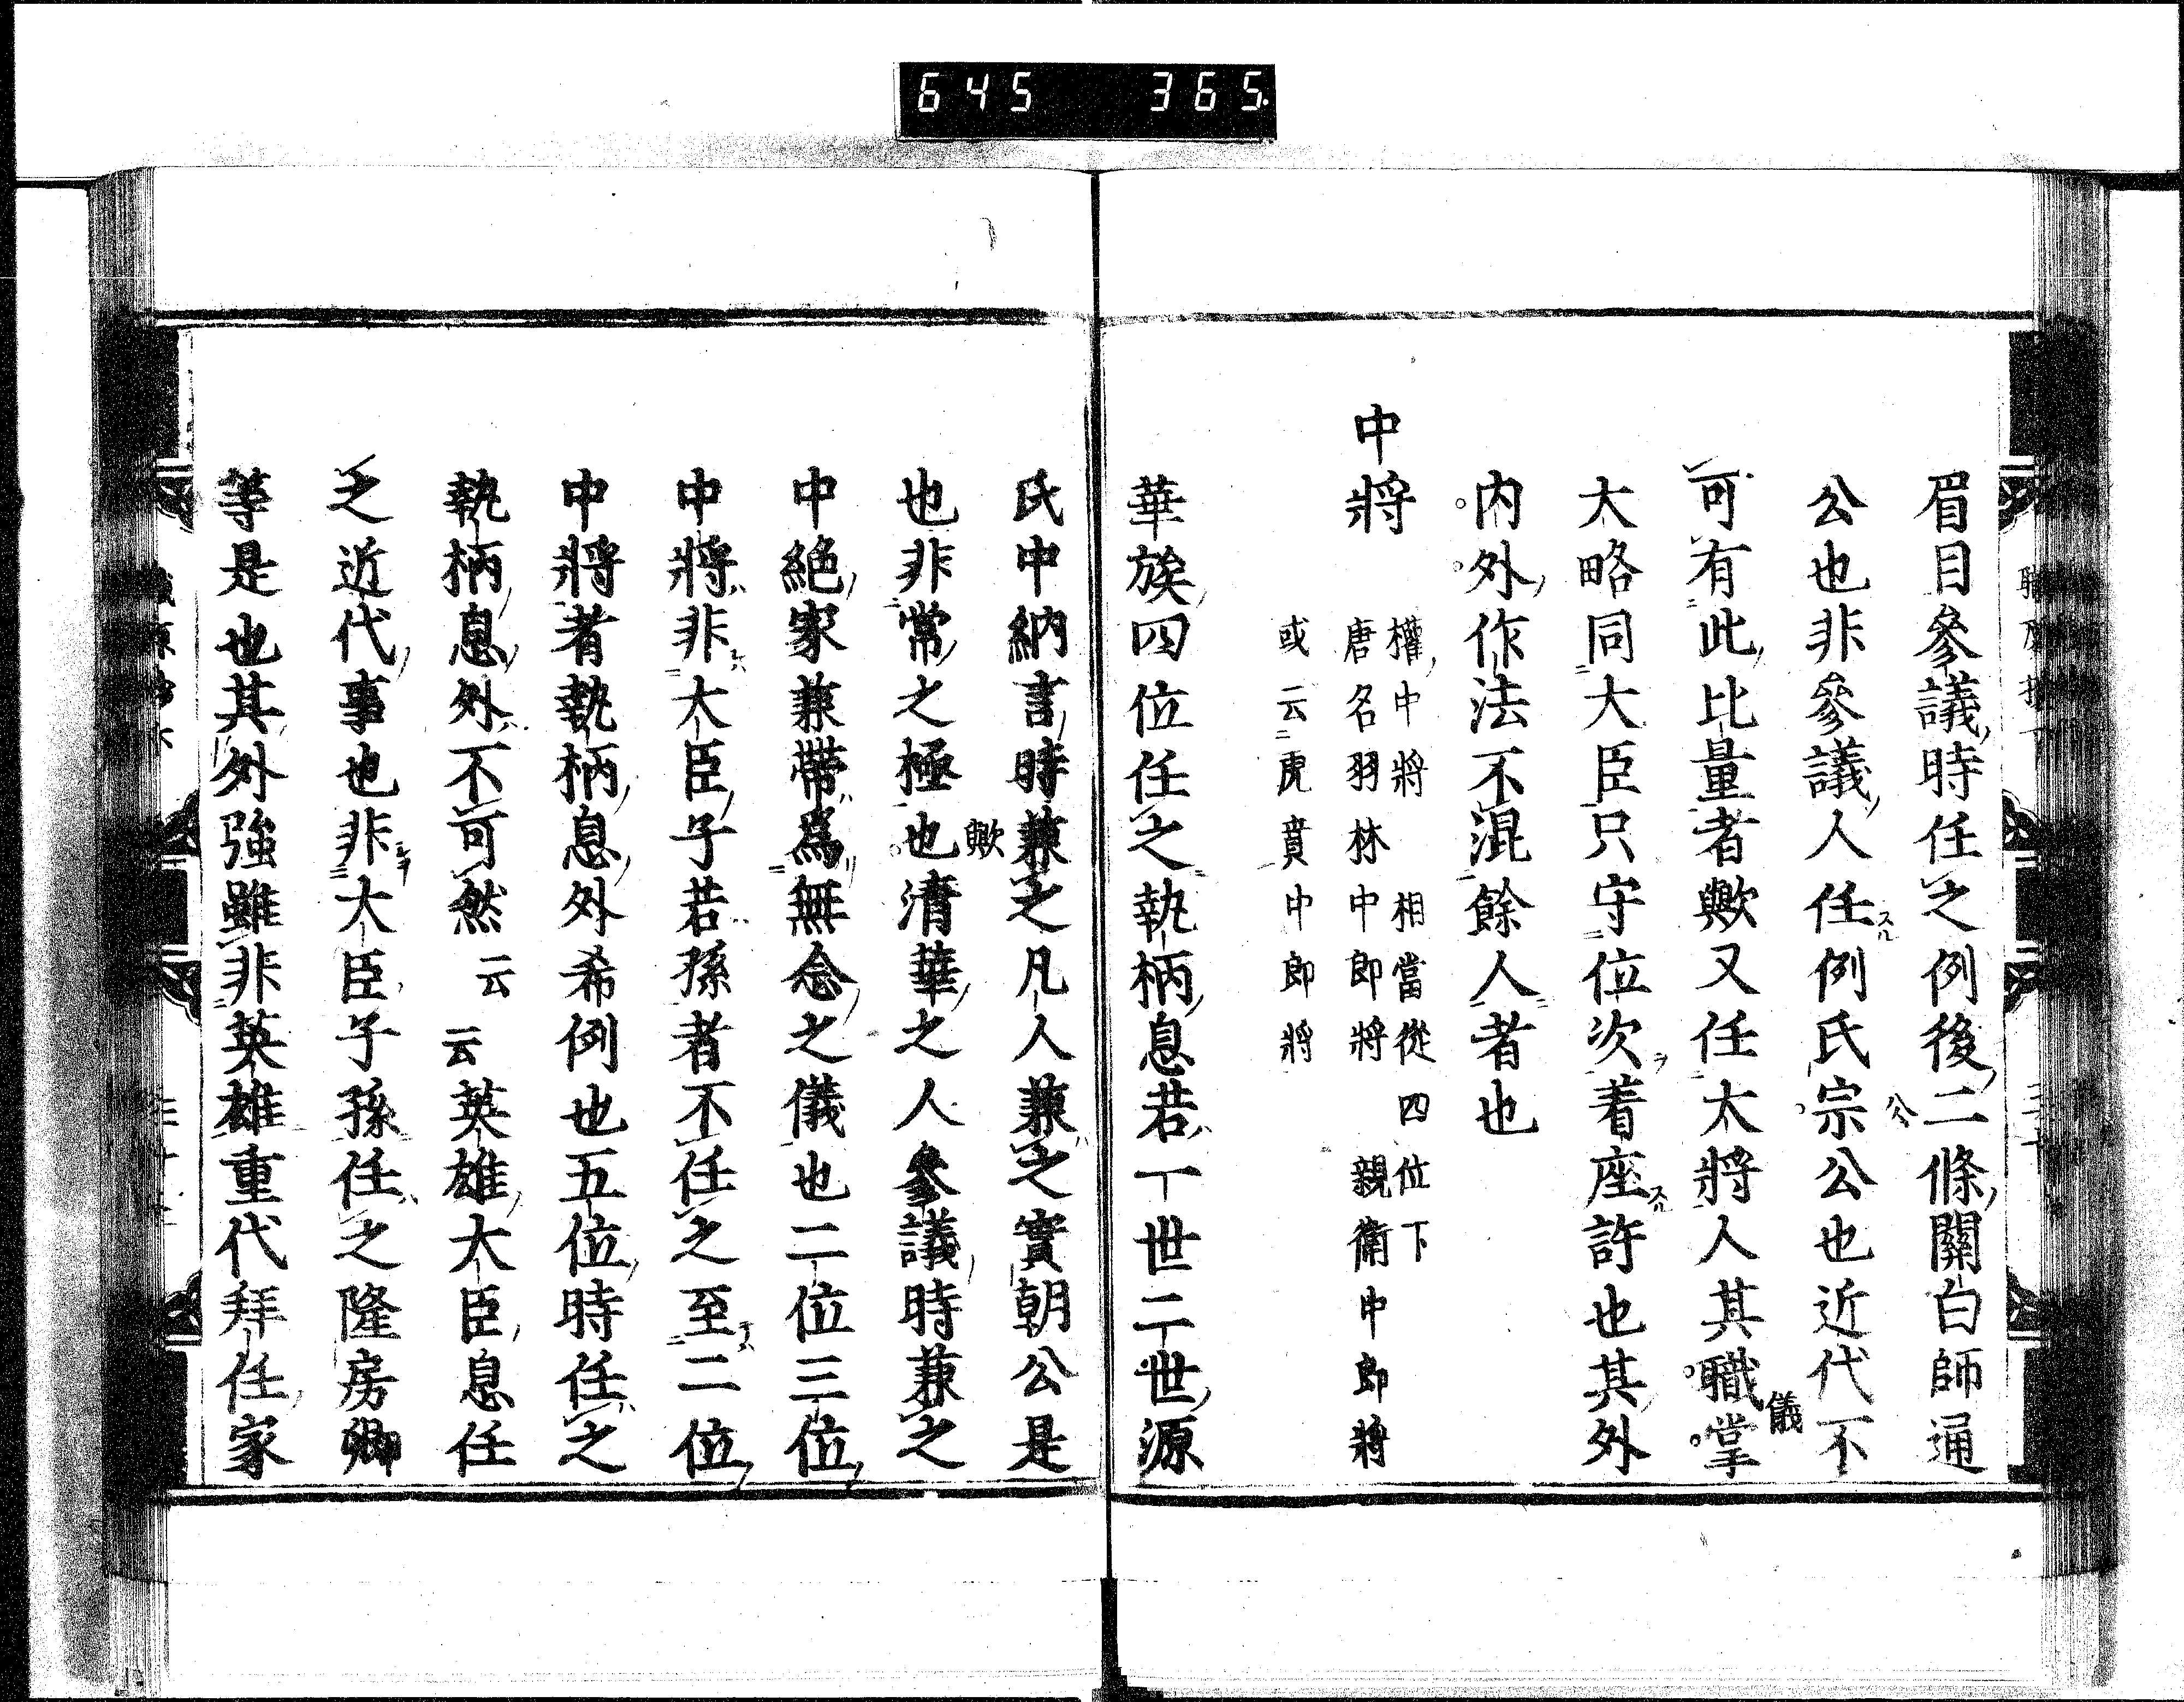 645 365.
眉目參議時任之例後二條關白師通
公也非參議人任例氏宗公也近代不
可有此比量者歟又任大將人其職掌
儀
大略同大臣只守位次着座許也其外
内外作法不混餘人者也
中將
權中將 相當從四位下
唐名羽林中郎將 親衛中郎將
或云虎賁中郎將
華族四位任之執柄息若一世二世源
氏中納言時兼之凡人兼之實朝公是
也非常之極也清華之人參議時兼之
歟
中絶家兼帶爲無念之儀也二位三位
中將非大臣子若孫者不任之至二位
中將者執柄息外希例也五位時任之
執柄息外不可然云云英雄大臣息任
之近代事也非大臣子孫任之隆房卿
等是也其外強雖非英雄重代拜任家